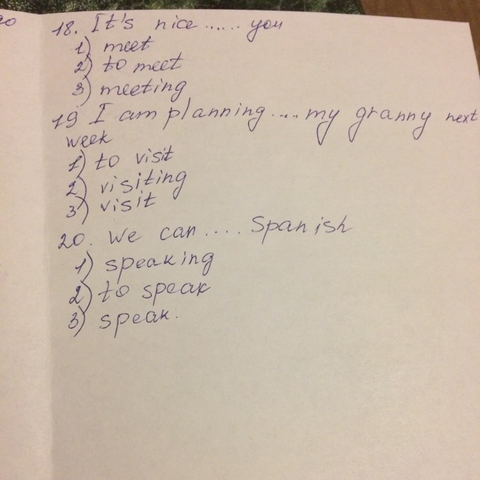 18. It's nice ...... you
1) meet
2) to meet
3) meeting
19 I am planning .... my granny next
week
1) to visit
2) visiting
3) visit
20. We can .... Spanish
1) speaking
2) to speak
3) speak.